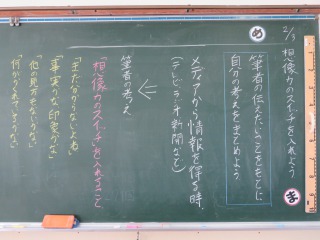 2/3 想像力のスイッチを入れよう
め
筆者の伝えたいことをもとに
自分の考えをまとめよう
ま
メディアから情報を得る時、
(テレビ・ラジオ・新聞など)
筆者の考え
「想像力のスイッチ」を入れること
『まだ分からないよね』
『事実かな、印象かな』
『他の見方もないかな』
『何がかくれているかな』